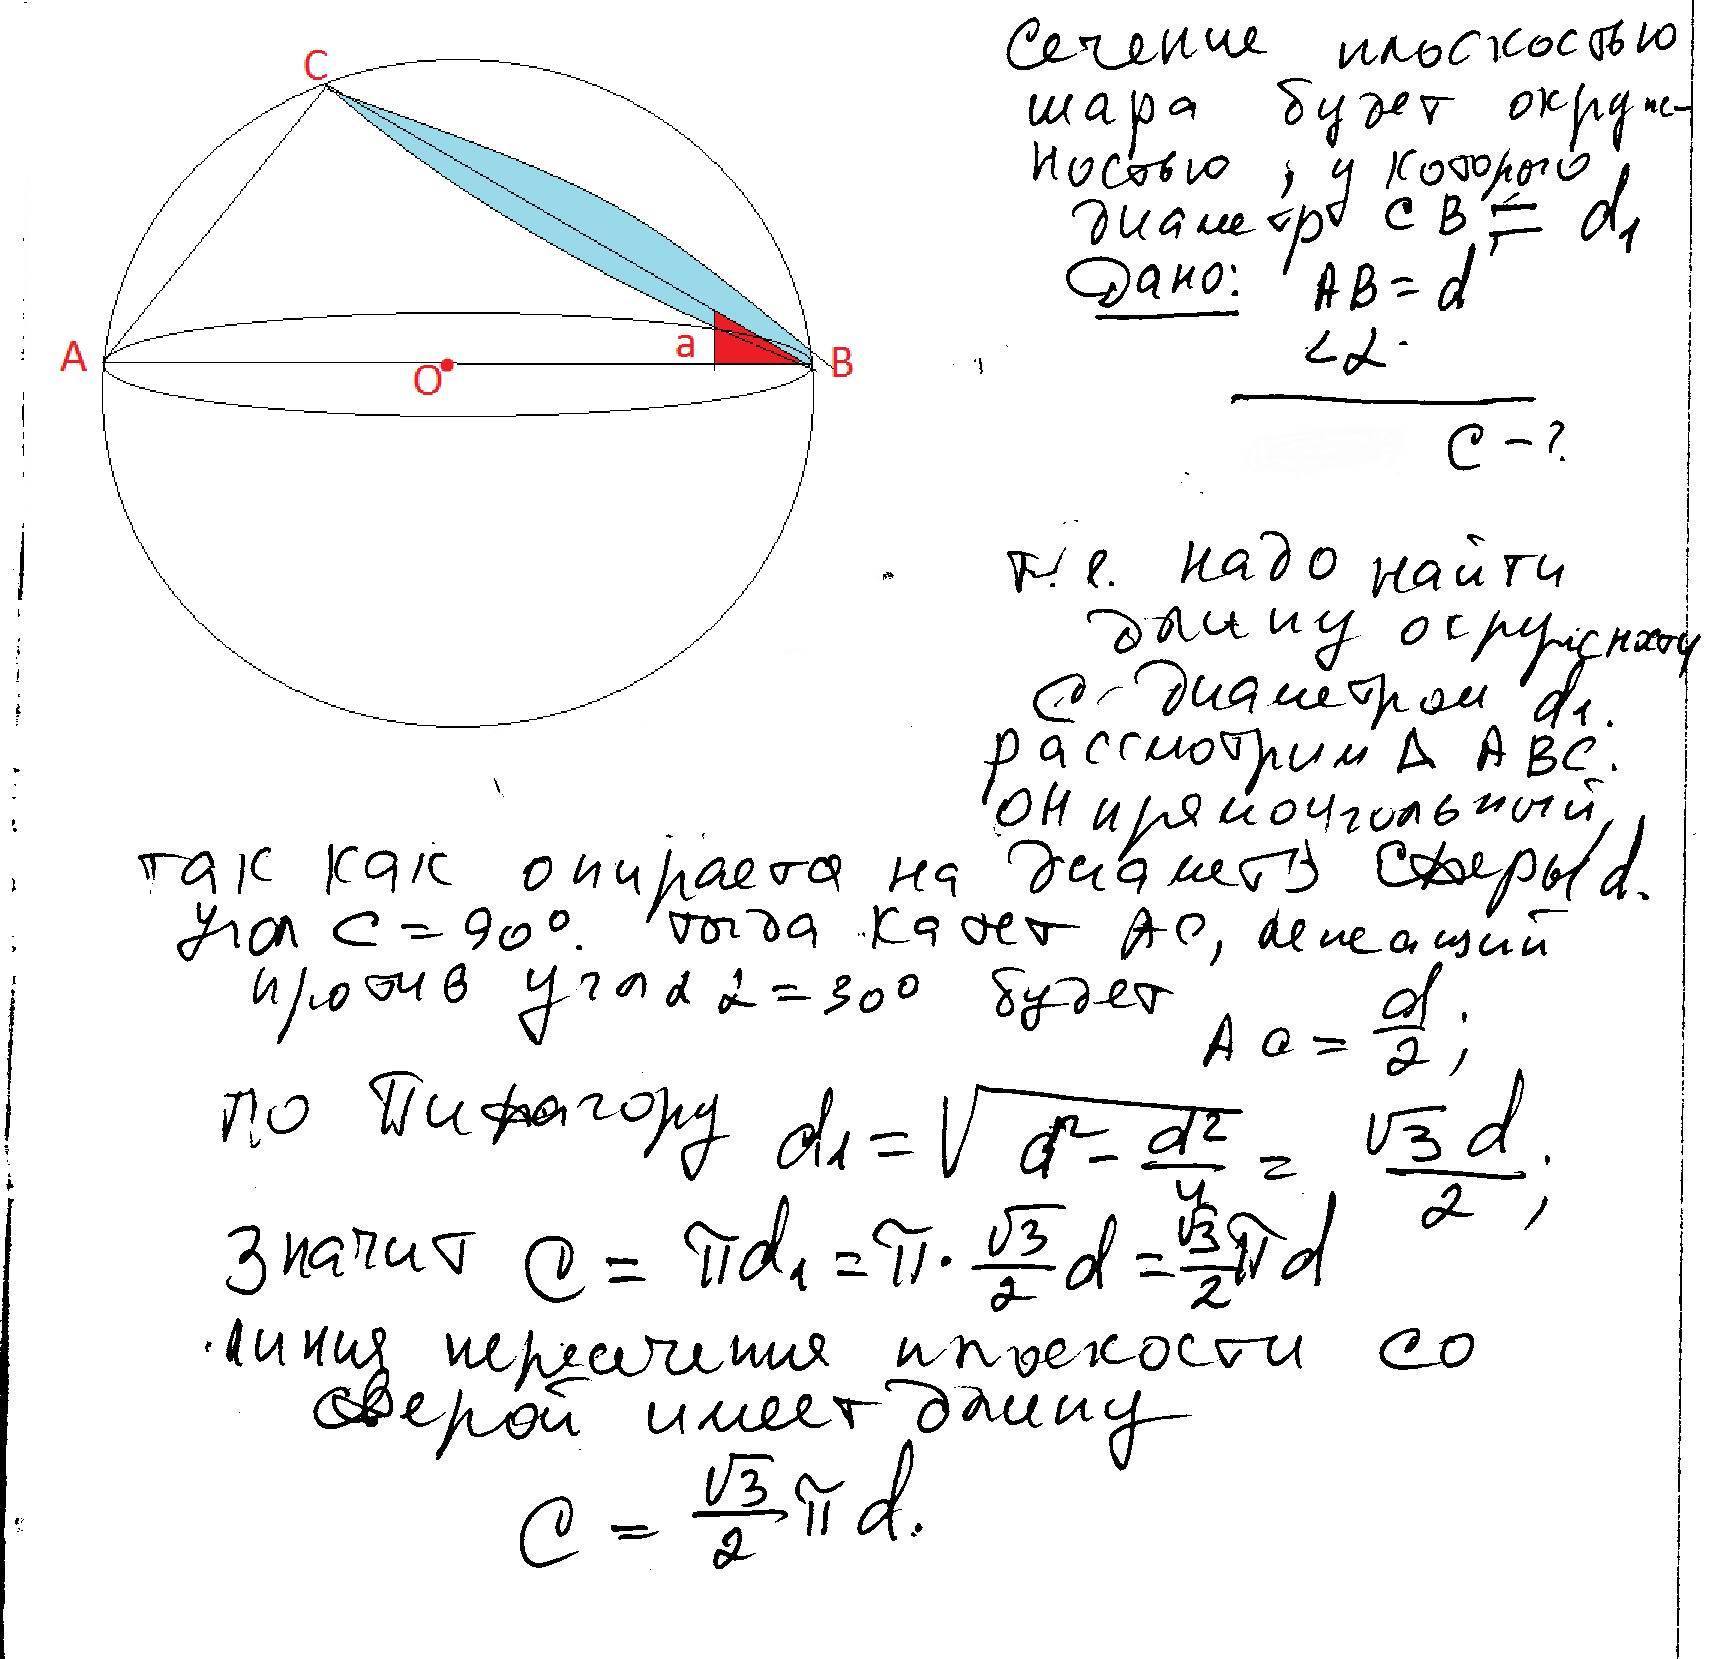 C
A
O
a
B
Сечение плоскостью
шара будет окруж-
ностью, у которого
диаметр CB = d₁
Дано: AB = d
∠α.
C - ?
т.е. надо найти
длину окружности
с диаметром d₁.
рассмотрим Δ ABC.
он прямоугольный,
так как опирается на диаметр сферы d.
Угол C = 90°. тогда катет AC, лежащий
против угла α = 30° будет
AC = d/2;
по Пифагору d₁ = √(d² - d²/4) = √3 d/2;
Значит C = πd₁ = π · √3/2 d = √3/2 πd
линия пересечения плоскости со
сферой имеет длину
C = √3/2 π d.